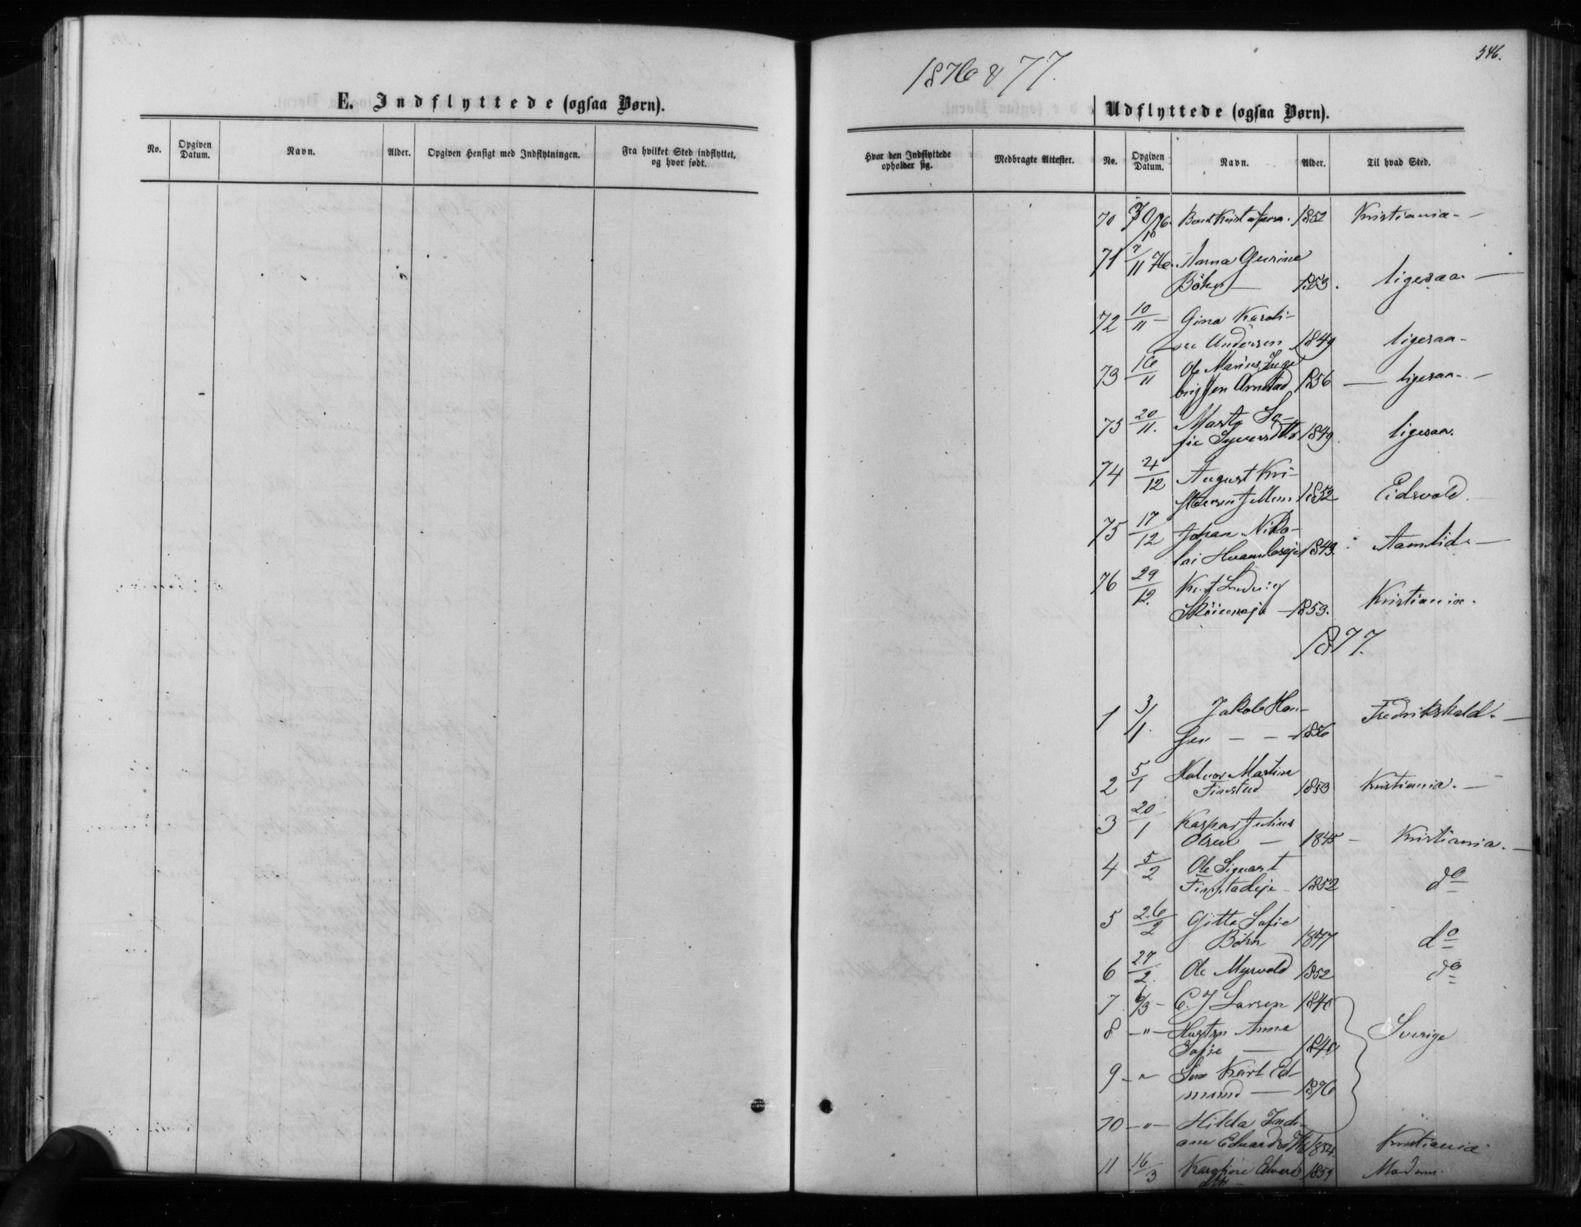 346.
1876 & 77.
E. Indflyttede (ogsaa Børn).
No.
Opgiven Datum.
Navn.
Alder.
Opgiven Hensigt med Indflytningen.
Fra hvilket Sted indflyttet, og hvor født.
Udflyttede (ogsaa Børn).
Hvor den Indflyttede opholder sig.
Medbragte Attester.
No.
Opgiven Datum.
Navn.
Alder.
Til hvad Sted.
70 30/10 76. 1852 Kristiania -
71 7/11 76. Anna Gurine
Böhn — 1853. ligesaa. —
72 10/11 — Gina Karoli-
ne Andersen 1849 ligesaa -
73 16/11 Ole Marius Inge
brigtsen 1856 — ligesaa. —
73 20/11. Marte So-
fie Syversdtr 1849. ligesaa.
74 4/12 August Kri-
1852 Eidsvold.
75 17/12 Johan Niko-
lai 1843. Aamlid. —
76 29/12. Ludvig
1853. Kristiania.
1877.
1 3/1. Jakob Han-
sen — — 1856 Fredrikshald. —
2 5/1 Halvor Martin
Finstad 1853 Kristiania. —
3 20/1 Kaspar Julius
Olsen — 1845 — Kristiania. —
4 5/2 Ole Sigvart
Finstadeje - 1852 do
5 26/2 Gitte Sofie
Böhn 1847 do
6 27/2. Ole Myrvold 1852 do
7 6/3 - C. J Larsen 1840
8 -"- Hustru Anna
Sofie — 1840 Sverige
9 -"- Søn Karl Ed-
mund — 1876
10 -"- Hilda Indi-
ane 1854. Kristiania.
11 16/3 1859